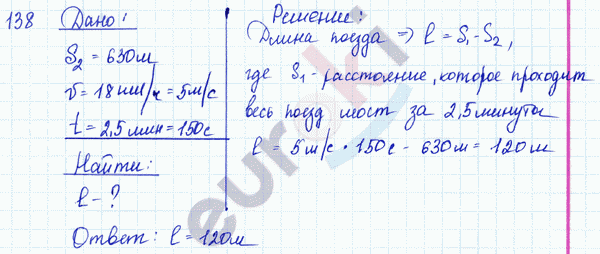 138 Дано:
S₂ = 630м
v = 18 км/ч = 5м/с
t = 2,5 мин = 150с
Найти:
l - ?
Ответ: l = 120м
Решение:
Длина поезда => l = S₁ - S₂,
где S₁ - расстояние, которое проходит
весь поезд мост за 2,5 минуты
l = 5м/с • 150с - 630м = 120м
euroki